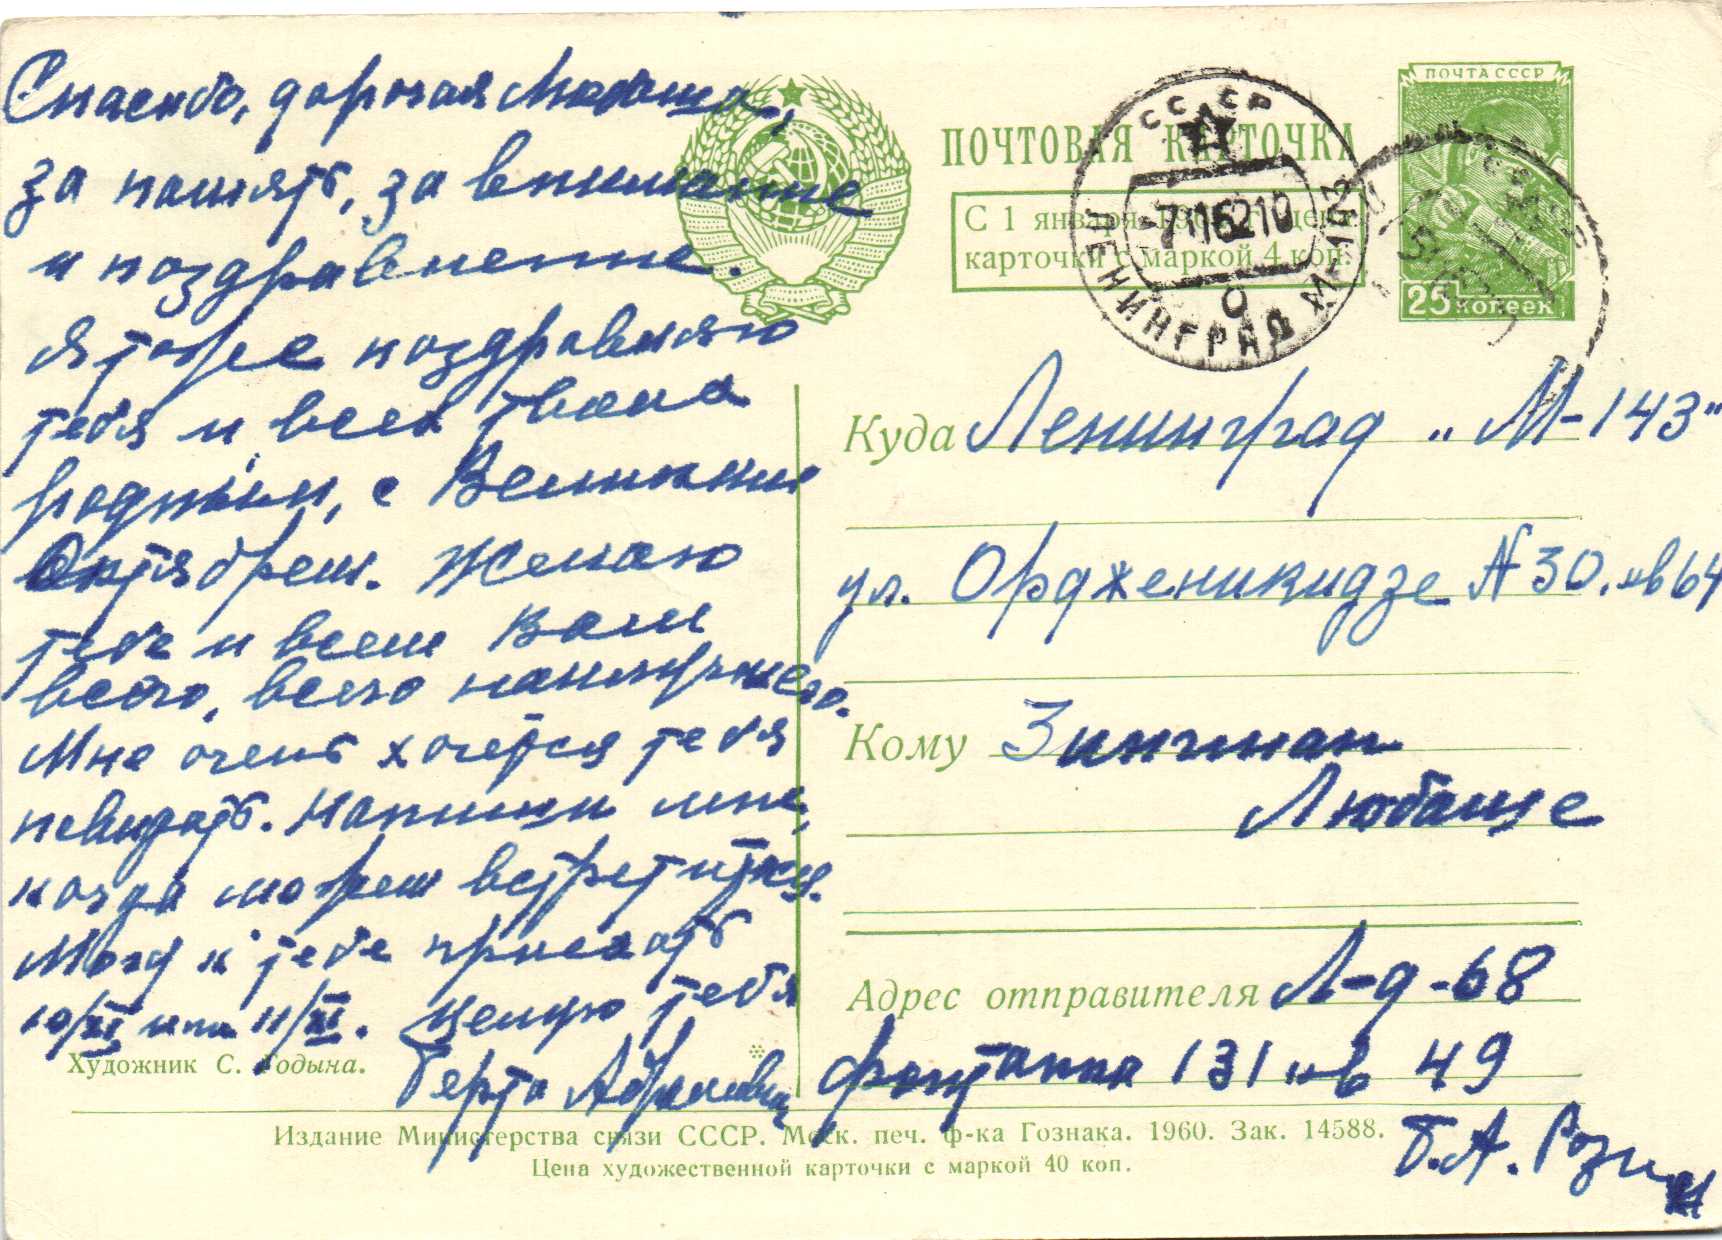 Спасибо, дорогая Любаша,
за память, за внимание
и поздравление.
Я тоже поздравляю
тебя и всех твоих
родных, с Великим
Октябрем. Желаю
тебе и всем Вам
всего, всего наилучшего.
Мне очень хочется тебя
повидать. Напиши мне,
когда можем встретиться.
Могу к тебе приехать
10/XI или 11/XI. Целую тебя
Берта Абрамовна
Художник С. Годына.
ПОЧТОВАЯ КАРТОЧКА
С 1 января 19 г. цена
карточки с маркой 4 коп.
СССР
7 11 62 10
ЛЕНИНГРАД М-142
О
ПОЧТА СССР
25 копеек
Куда Ленинград „М-143"
ул. Орджоникидзе № 30, кв 64
Кому Зингман
Любаше
Адрес отправителя Л-д-68
Фонтанка 131 кв 49
Б.А. Розин
Издание Министерства связи СССР. Моск. печ. ф-ка Гознака. 1960. Зак. 14588.
Цена художественной карточки с маркой 40 коп.